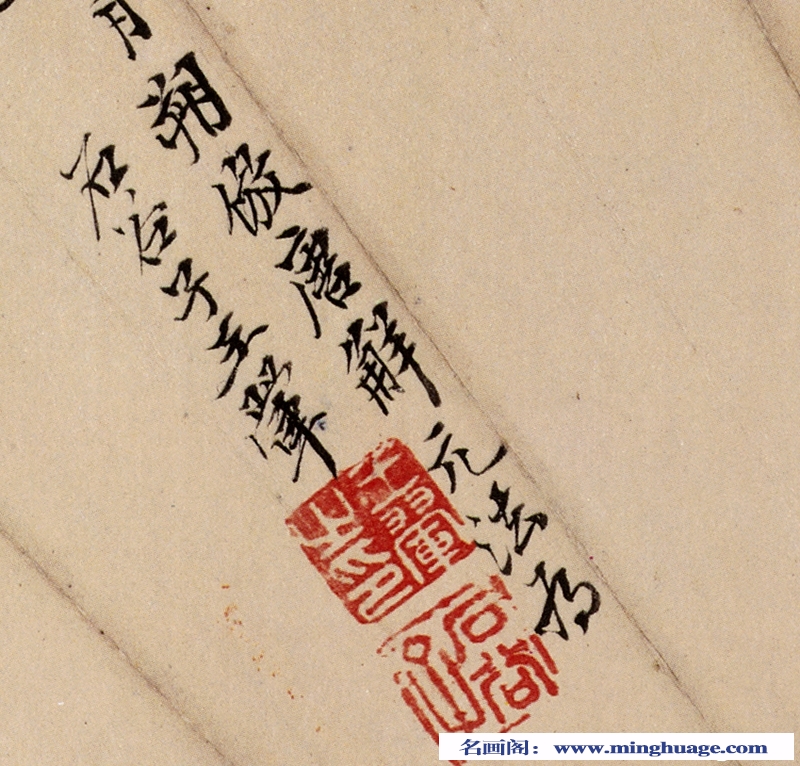 月朔倣唐解元法為
石谷子王翬
名画阁：www.minghuage.com